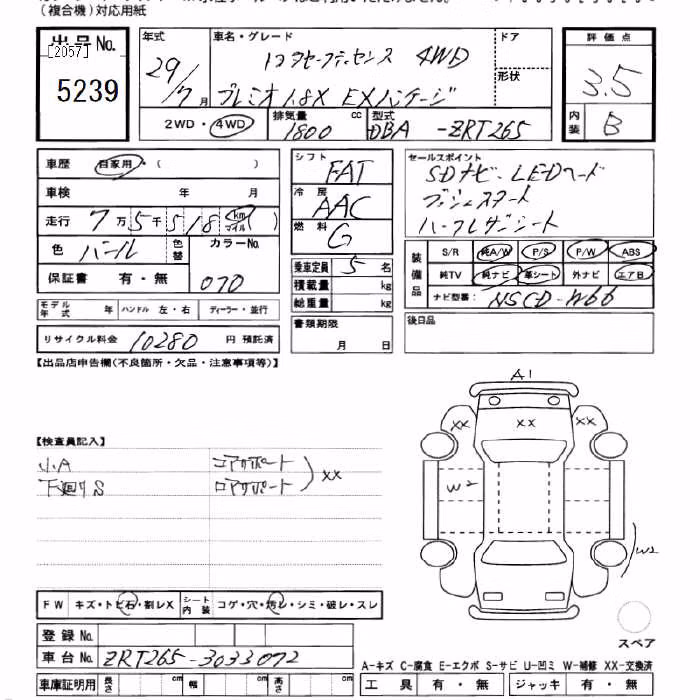 (複合機)対応用紙
出品No. [2057] 5239
年式 29/7月
車名・グレード トヨタセーフティセンス 4WD
プレミオ 1.8X EXパッケージ
ドア
形状
2WD・4WD 排気量 1800 cc 型式 DBA-ZRT265
評価点 3.5
内装 B
車歴 自家用・( )
車検 年 月
走行 7万5千518 km マイル ( )
色 パール 色替 カラーNo. 070
保証書 有・無
モデル年式 年 ハンドル 左・右 ディーラー・並行
リサイクル料金 10280 円 預託済
シフト FAT
冷房 AAC
燃料 G
乗車定員 5 名
積載量 kg
総重量 kg
書類期限 月 日
セールスポイント
SDナビ・LEDヘード
プッシュスタート
ハーフレザーシート
装備品 S/R 純A/W P/S P/W ABS
純TV 純ナビ 革シート 外ナビ エアB
ナビ型番: NSCD-W66
後日品
【出品店申告欄(不良箇所・欠品・注意事項等)】
A1
XX XX XX
W2
W2
【検査員記入】
小A コアサポート
下廻りS ロアサポート ) XX
FW キズ・トビ石・割レX シート内装 コゲ・穴・汚レ・シミ・破レ・スレ
登録No.
車台No. ZRT265-3033072
車庫証明用 長さ cm 幅 cm 高さ cm
スペア
A-キズ C-腐食 E-エクボ S-サビ U-凹ミ W-補修 XX-交換済
工具 有・無 ジャッキ 有・無